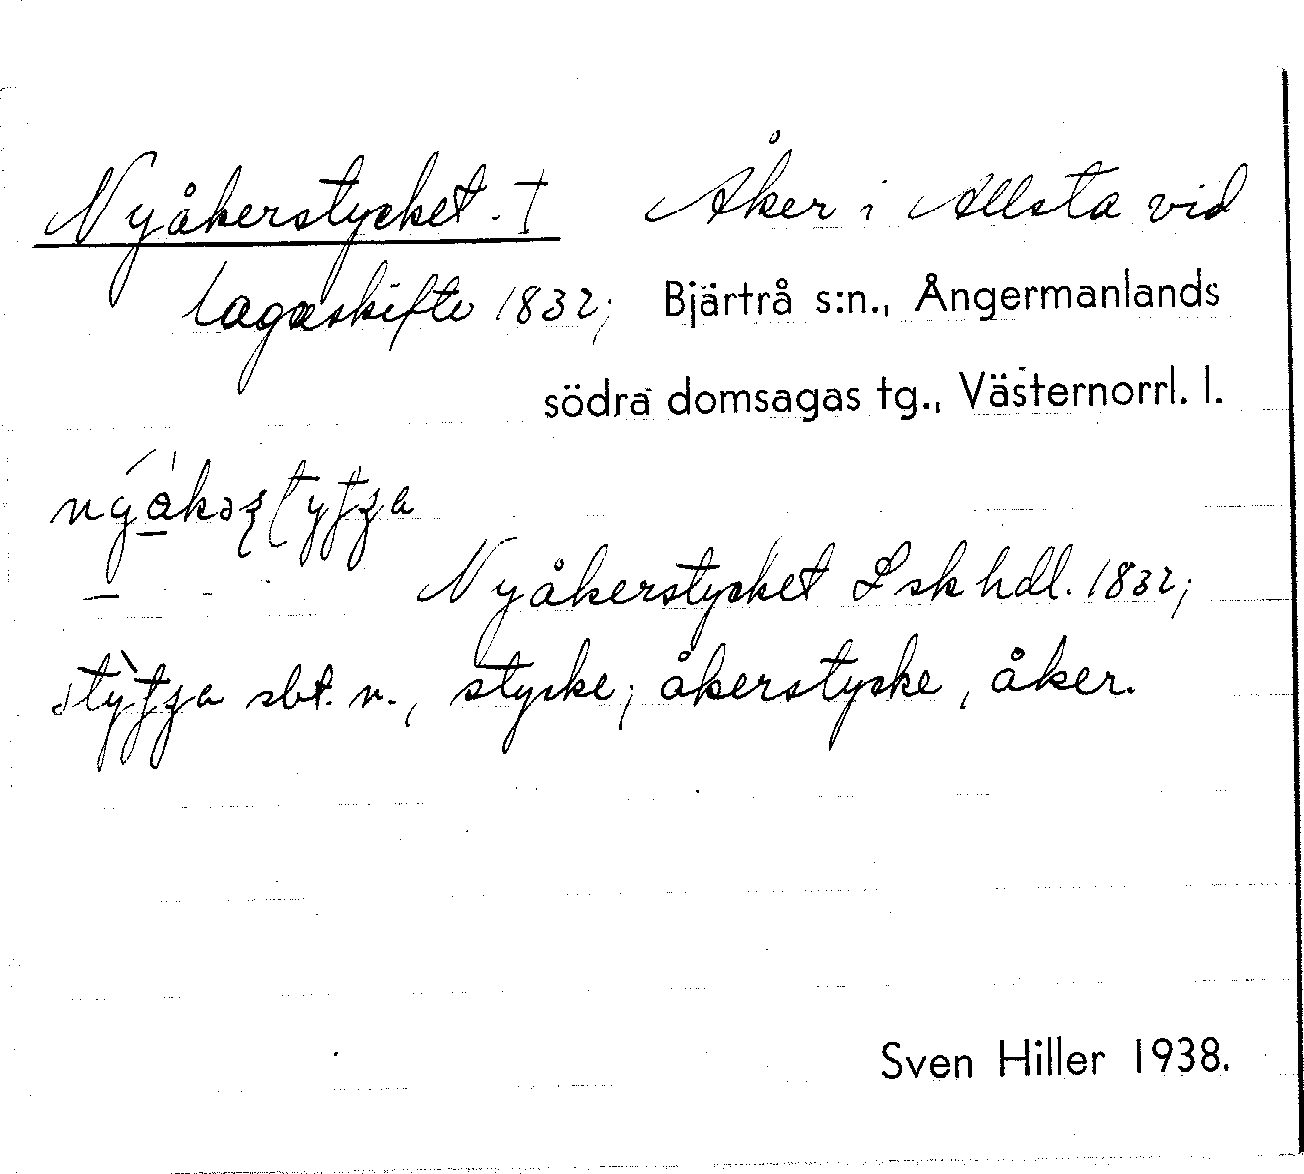 Nyåkerstycket. † Åker i Allsta vid
lagaskifte 1832; Bjärtrå s:n., Ångermanlands
södra domsagas tg., Västernorrl. l.
Nyåkerstycket L sk hdl. 1832;
sbt. n., stycke; åkerstycke, åker.
Sven Hiller 1938.